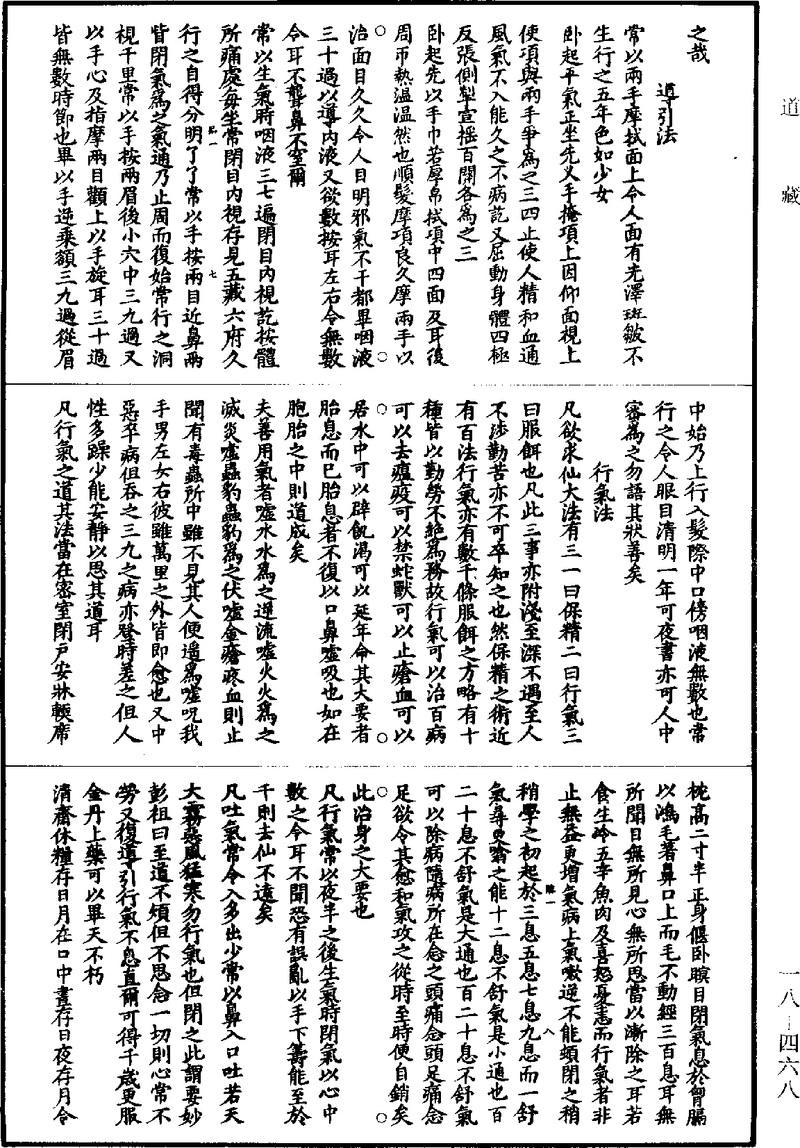 道藏
之哉
導引法
常以兩手摩拭面上令人面有光澤斑皺不
生行之五年色如少女
卧起平氣正坐先叉手掩項上因仰面視上
使項與兩手爭為之三四止使人精和血通
風氣不入能久之不病訖又屈動身體四極
反張側掣宣摇百關各為之三
卧起先以手巾若厚帛拭項中四面及耳後
周帀熱温温然也順髮摩項良久摩兩手以
治面目久久令人目明邪氣不干都畢咽液
三十過以導内液又欲數按耳左右令無數
令耳不聾鼻不窒爾
常以生氣時咽液三七遍閉目内視訖按體
所痛處每坐常閉目内視存見五藏六府久
行之自得分明了了常以手按兩目近鼻兩
皆閉氣為之氣通乃止周而復始常行之洞
視千里常以手按兩眉後小穴中三九過又
以手心及指摩兩目顴上以手旋耳三十過
皆無數時節也畢以手逆乘額三九過從眉
七
中始乃上行入髮際中口傍咽液無數也常
行之令人眼目清明一年可夜書亦可人中
密為之勿語其狀善矣
行氣法
凡欲求仙大法有三一曰保精二曰行氣三
曰服餌也凡此三事亦附淺至深不遇至人
不涉勤苦亦不可卒知之也然保精之術近
有百法行氣亦有數千條服餌之方略有十
種皆以勤勞不絶為務故行氣可以治百病
可以去瘟疫可以禁蛇獸可以止瘡血可以
居水中可以辟飢渴可以延年命其大要者
胎息而已胎息者不復以口鼻噓吸也如在
胞胎之中則道成矣
夫善用氣者噓水水為之逆流噓火火為之
滅炎噓蟲豹蟲豹為之伏噓金瘡瘡血則止
聞有毒蟲所中雖不見其人便遥為噓呪我
手男左女右彼雖萬里之外皆即愈也又中
惡卒病但吞之三九之病亦登時差之但人
性多躁少能安靜以思其道耳
凡行氣之道其法當在密室閉戸安牀輭席
枕高二寸半正身偃卧瞑目閉氣息於胷膈
以鴻毛著鼻口上而毛不動經三百息耳無
所聞目無所見心無所思當以漸除之耳若
食生冷五辛魚肉及喜怒憂恚而行氣者非
止無益更增氣病上氣嗽逆不能頓閉之稍
稍學之初起於三息五息七息九息而一舒
氣尋更噏之能十二息不舒氣是小通也百
二十息不舒氣是大通也百二十息不舒氣
可以除病隨病所在念之頭痛念頭足痛念
足欲令其愈和氣攻之從時至時便自銷矣
此治身之大要也
凡行氣常以夜半之後生氣時閉氣以心中
數之令耳不聞恐有誤亂以手下籌能至於
千則去仙不遠矣
凡吐氣常令入多出少常以鼻入口吐若天
大霧惡風猛寒勿行氣也但閉之此謂要妙
彭祖曰至道不煩但不思念一切則心常不
勞又復導引行氣不息直爾可得千歲更服
金丹上藥可以畢天不朽
清齋休糧存日月在口中晝存日夜存月令
八
一八―四六八